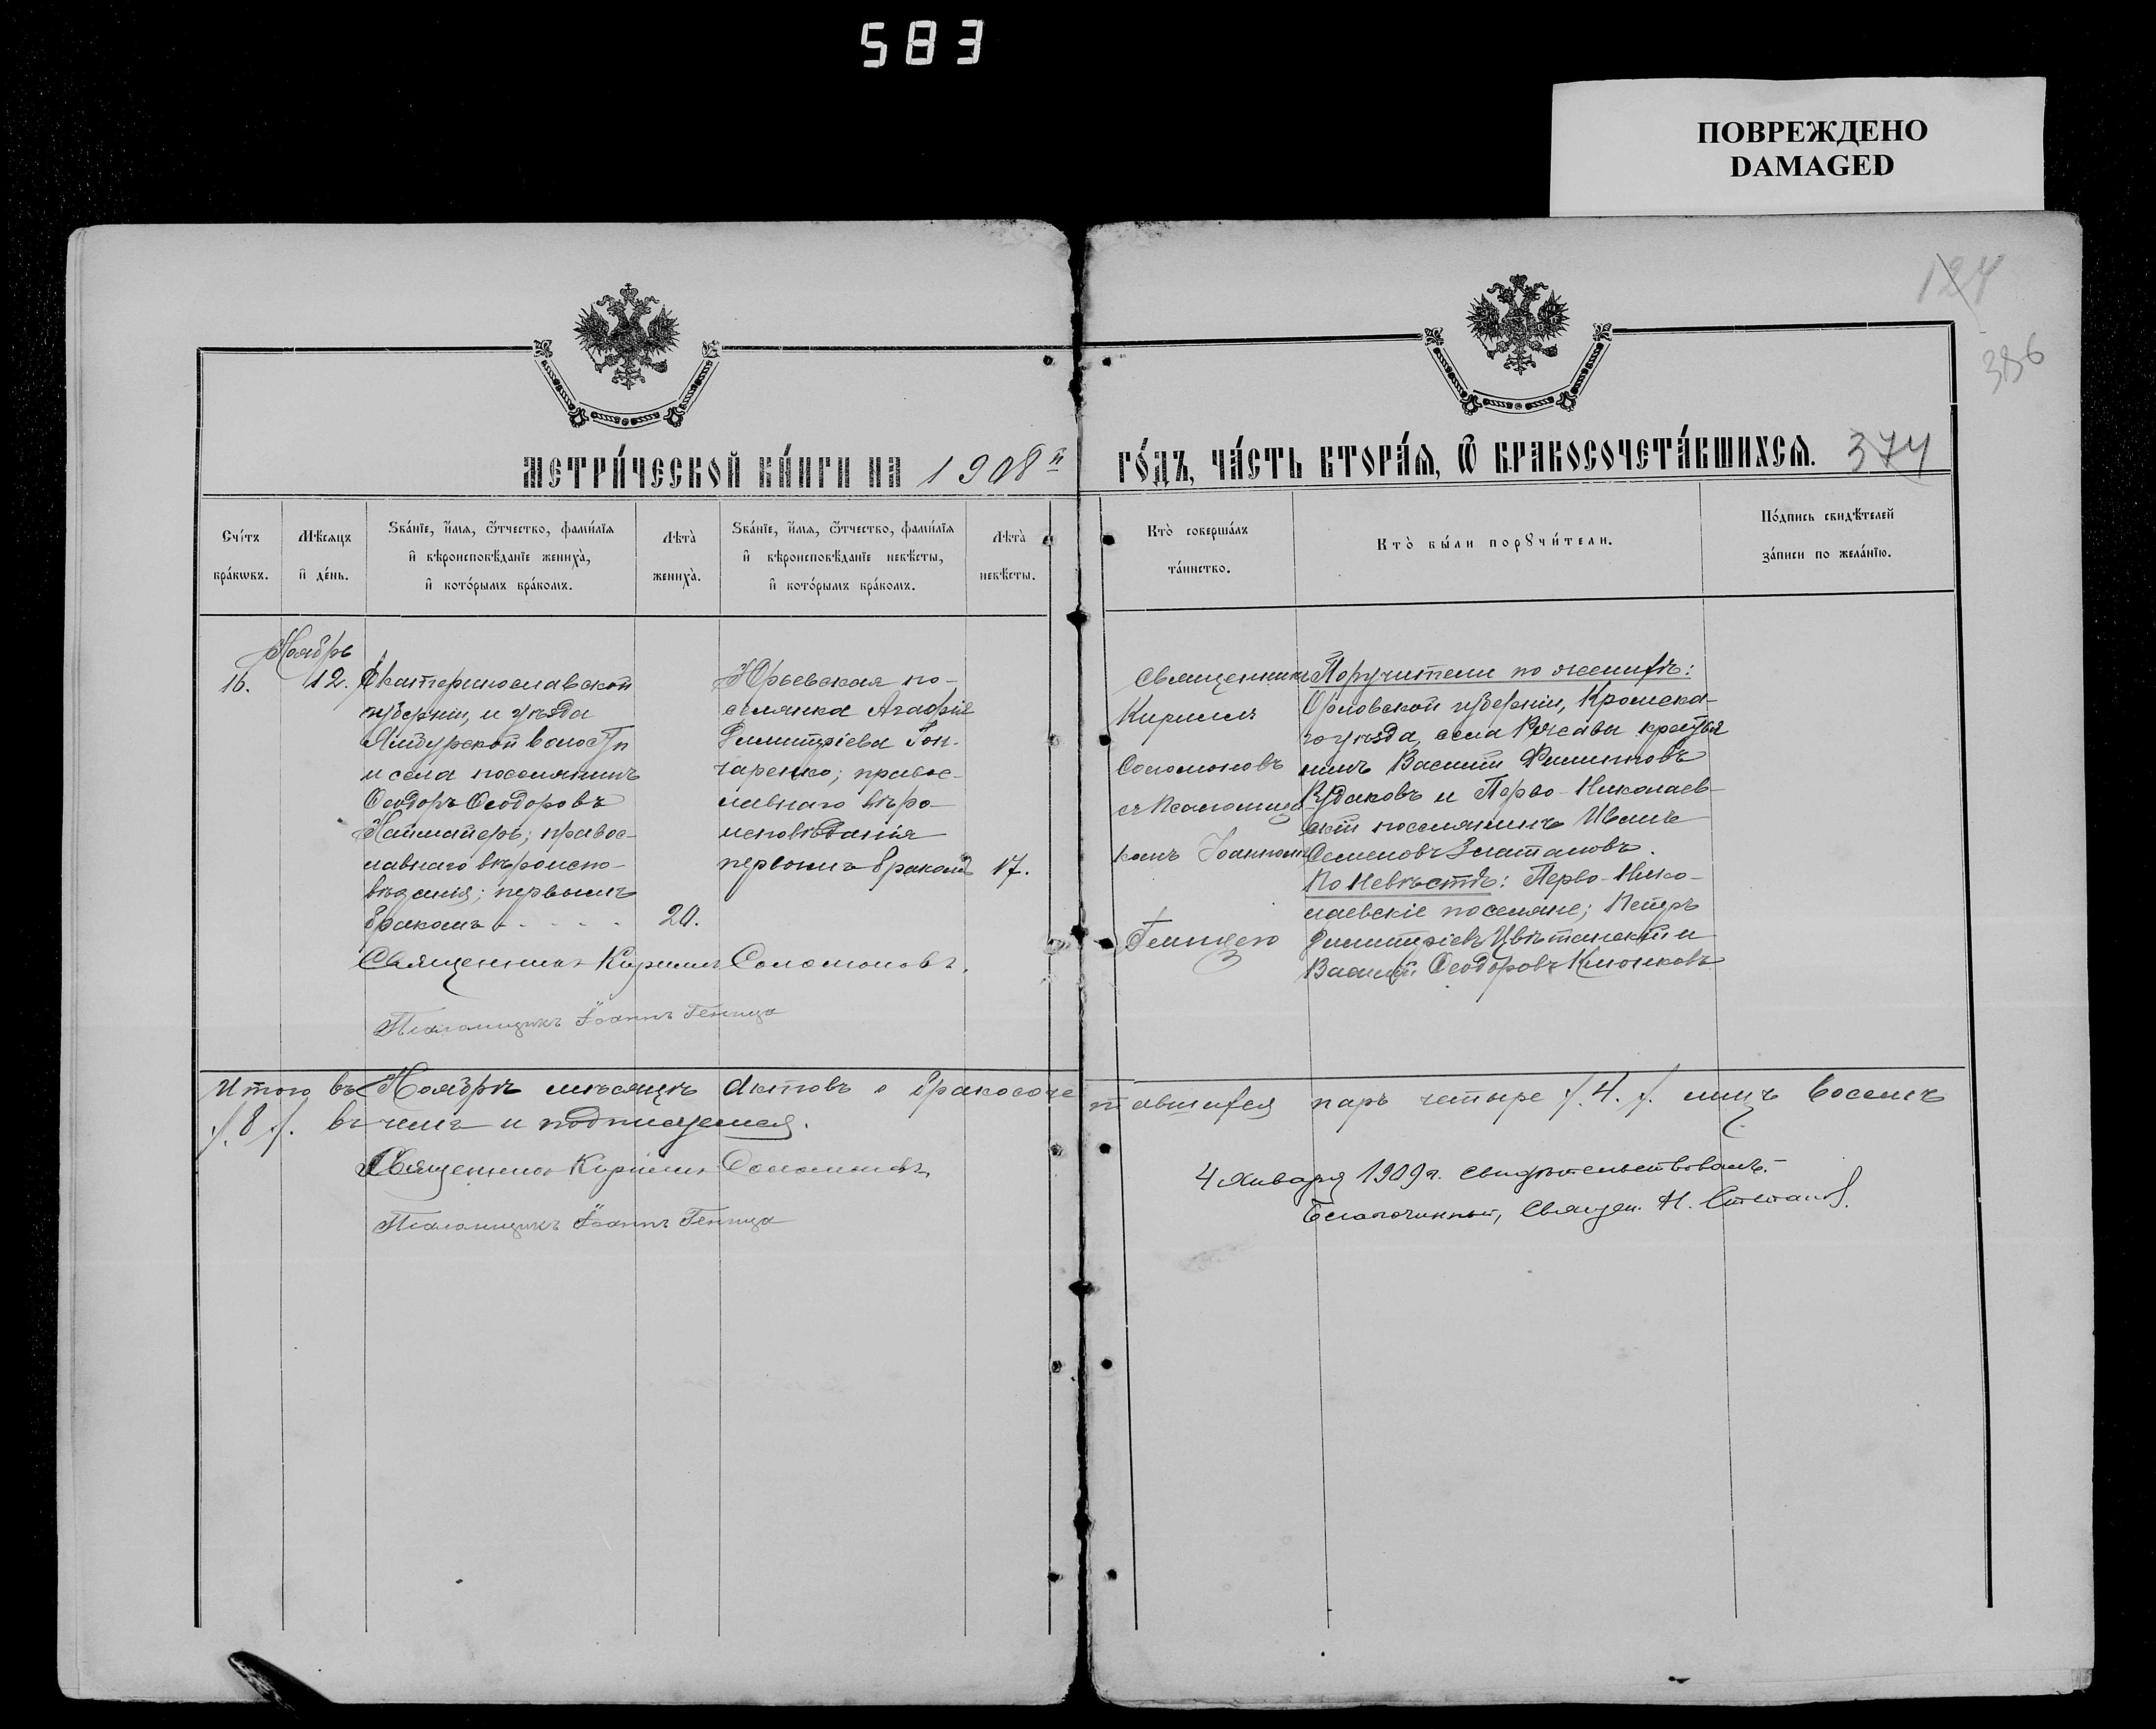 583
ПОВРЕЖДЕНО
DAMAGED
124
386
МЕТРИ́ЧЕСКОЙ КНИ́ГИ НА 1908й ГО́ДЪ, ЧА́СТЬ ВТОРА́Ѧ, Ѿ БРАКОСОЧЕТА́ВШИХСѦ. 374
Сче́тъ бра́кѡвъ.
Мѣ́сѧцъ и҆ де́нь.
Зва́нїе, и҆́мѧ, ѻ҆́тчество, фами́лїѧ и҆ вѣроисповѣ́данїе жениха̀, и҆ кото́рымъ бра́комъ.
Лѣта̀ жениха̀.
Зва́нїе, и҆́мѧ, ѻ҆́тчество, фами́лїѧ и҆ вѣроисповѣ́данїе невѣ́сты, и҆ кото́рымъ бра́комъ.
Лѣта̀ невѣ́сты.
Кто̀ соверша́лъ та́инство.
Кто̀ бы́ли порꙋчи́тели.
По́дпись свидѣ́телей за́писи по жела́нїю.
Ноябрь
16.
12.
Екатеринославской
губерніи, и уѣзда
волости
и села поселянинъ
Ѳеодоръ Ѳеодоровъ
Наймайеръ; правос-
лавнаго вѣроиспо-
вѣданія; первымъ
бракомъ - - - - -
20.
Юрьевская по-
селянка Агафія
Димитріева Гон-
чаренко; правос-
лавнаго вѣро
исповѣданія
первымъ бракомъ
17.
Священникъ
Кириллъ
Соломоновъ
съ Псаломщи-
комъ Іоанномъ
Геницею
Поручители по женихѣ:
Орловской губерніи, Кромска-
го уѣзда, села крестья
нинъ Василій Филипповъ
Кудаковъ и Перво-Николаев-
скій поселянинъ Иванъ
Семеновъ Златановъ.
По невѣстѣ: Перво-Нико-
лаевскіе поселяне; Петръ
Димитріевъ Цвѣтанскій и
Василій Ѳеодоровъ Клочковъ.
Священникъ Кириллъ Соломоновъ.
Псаломщикъ Іоаннъ Геница
Итого въ Ноябрѣ мѣсяцѣ актовъ о бракосоче тавшихся паръ четыре /.4./. лицъ восемь
/.8./. въ чемъ и подписуемся.
Священникъ Кириллъ Соломоновъ
Псаломщикъ Іоаннъ Геница
4 Января 1909 г. свидѣтельствовалъ.-
Благочинный, Священ. Н. Стефановъ.